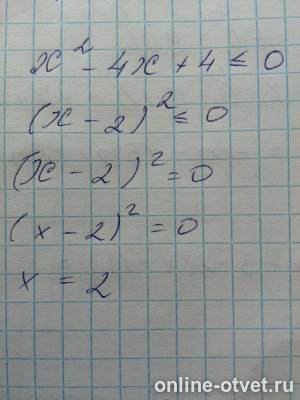 x² - 4x + 4 ≤ 0
(x - 2)² ≤ 0
(x - 2)² = 0
(x - 2)² = 0
x = 2
online-otvet.ru